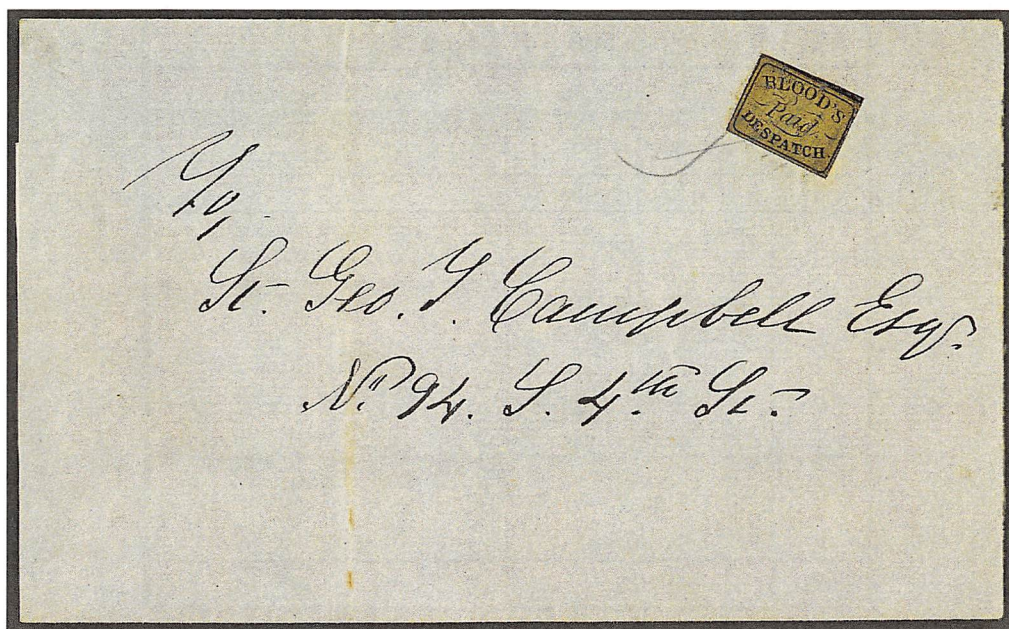 BLOOD'S
Paid.
DESPATCH.
To,
St. Geo. T. Campbell Esq.
No. 94. S. 4th St.